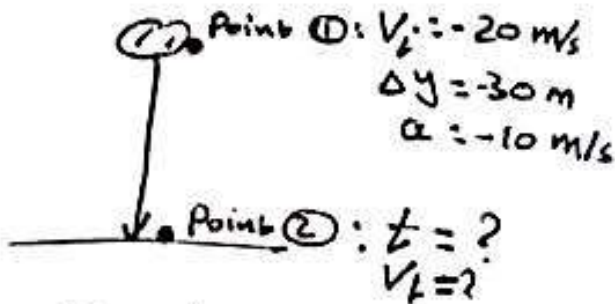 Point ①: Vi = -20 m/s
Δy = -30 m
a = -10 m/s
Point ②: t = ?
Vf = ?